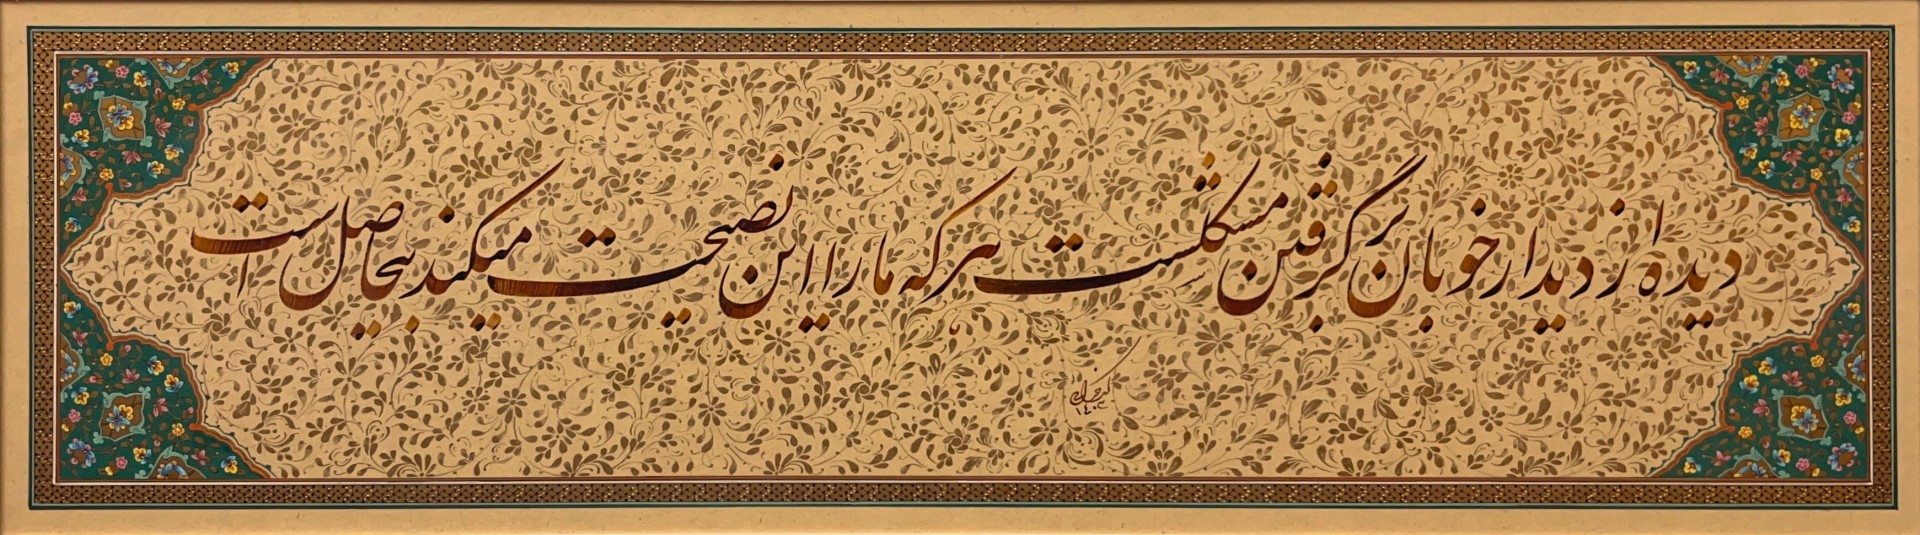 دیده از دیدار خوبان برگرفتن مشکلست هر که ما را این نصیحت میکند بیحاصل است
۱۴۰۲